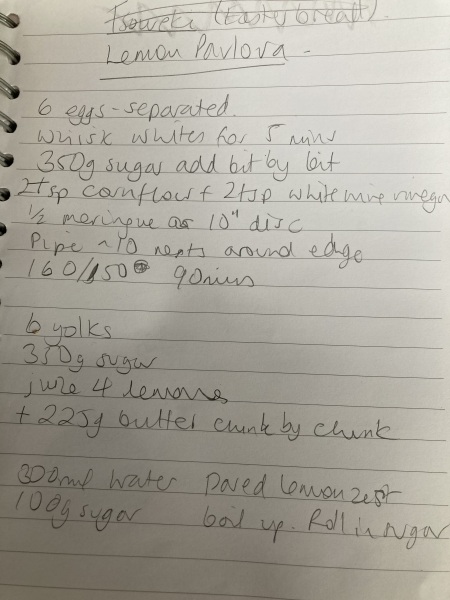 Tsoureki (Easter bread).
Lemon Pavlova -
6 eggs - separated
whisk whites for 5 mins
350g sugar add bit by bit
2tsp cornflour + 2tsp white wine vinegar
1/2 meringue as 10" disc
Pipe ~10 nests around edge
160/150 90mins
6 yolks
350g sugar
juice 4 lemons
+ 225g butter chunk by chunk
300ml water pared lemon zest
100g sugar boil up. Roll in sugar